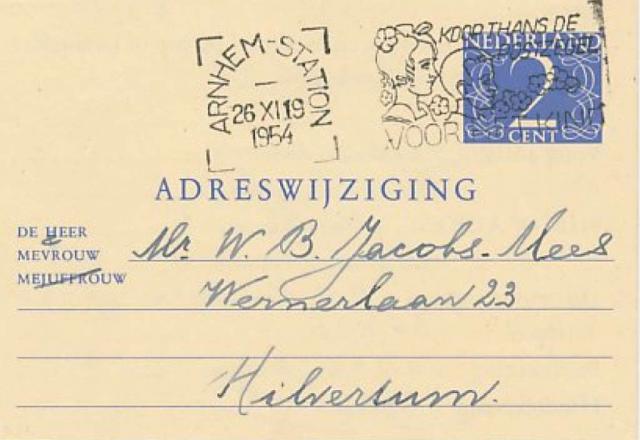 ARNHEM-STATION
26 XI 19
1954
KOOP THANS DE
VOOR
KIND
NEDERLAND
2
CENT
ADRESWIJZIGING
DE HEER
&
MEVROUW
MEJUFFROUW
Mr W. B. Jacobs-Mees
Wernerlaan 23
Hilversum.